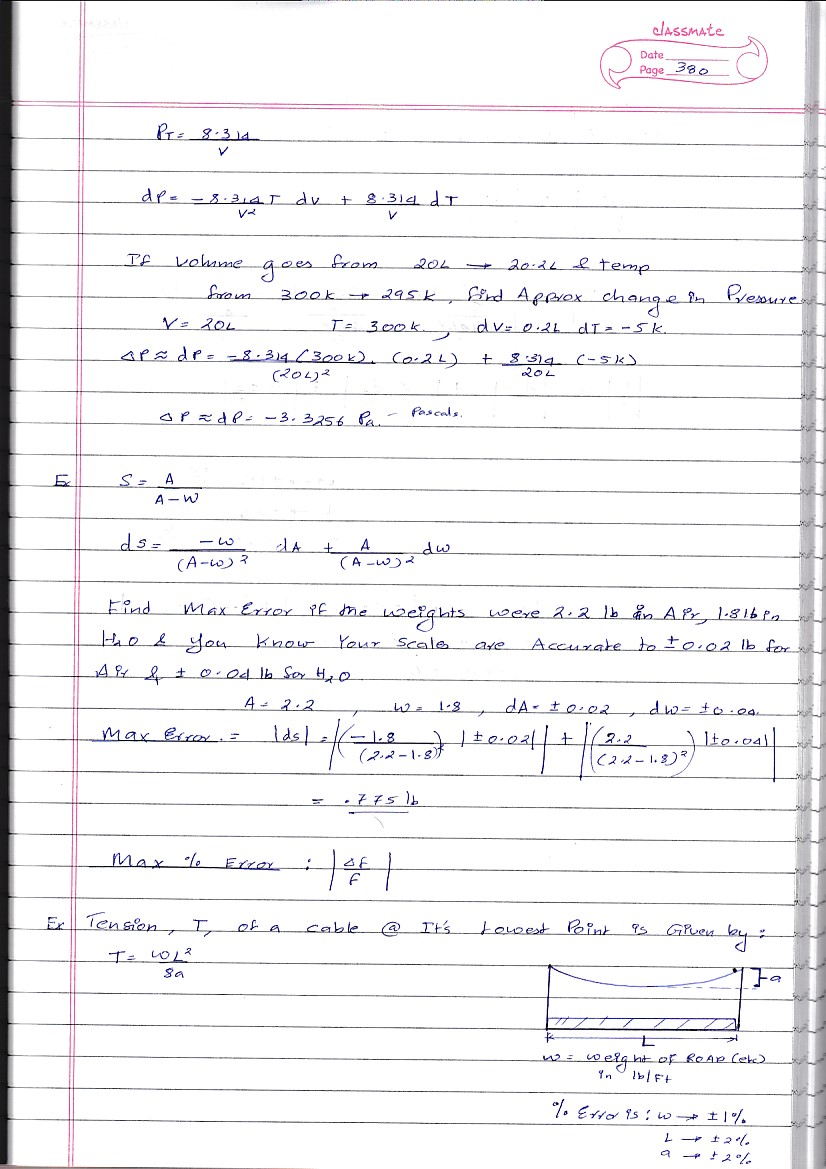 classmate
Date
Page 380
P_T = 8.314/V
dP = -8.314T/V² dv + 8.314/V dT
If volume goes from 20L → 20.2L & temp
from 300K → 295K, find Approx change in Pressure
V = 20L T = 300K, dv = 0.2L dT = -5K.
ΔP ≈ dP = -8.314(300K)/(20L)² . (0.2L) + 8.314/20L (-5K)
ΔP ≈ dP = -3.3256 Pa. - Pascals.
Ex S = A/A-W
ds = -w/(A-w)² dA + A/(A-w)² dw
Find Max Error if the weights were 2.2 lb in Air, 1.8 lb in
H₂O & You Know Your Scales are Accurate to ±0.02 lb for
Air & ± 0.04 lb for H₂O
A = 2.2, w = 1.8, dA = ±0.02, dw = ±0.04.
Max Error. = |ds| = |(-1.8/(2.2-1.8)²) |±0.02|| + |(2.2/(2.2-1.8)²) |±0.04||
= .775 lb
Max % Error : |ΔF/F|
Ex Tension, T, of a cable @ It's Lowest Point is Given by:
T = wL²/8a
a
L
w = weight of ROAD (etc)
in lb/Ft
% Error is: w → ±1%
L → ±2%
a → ±2%